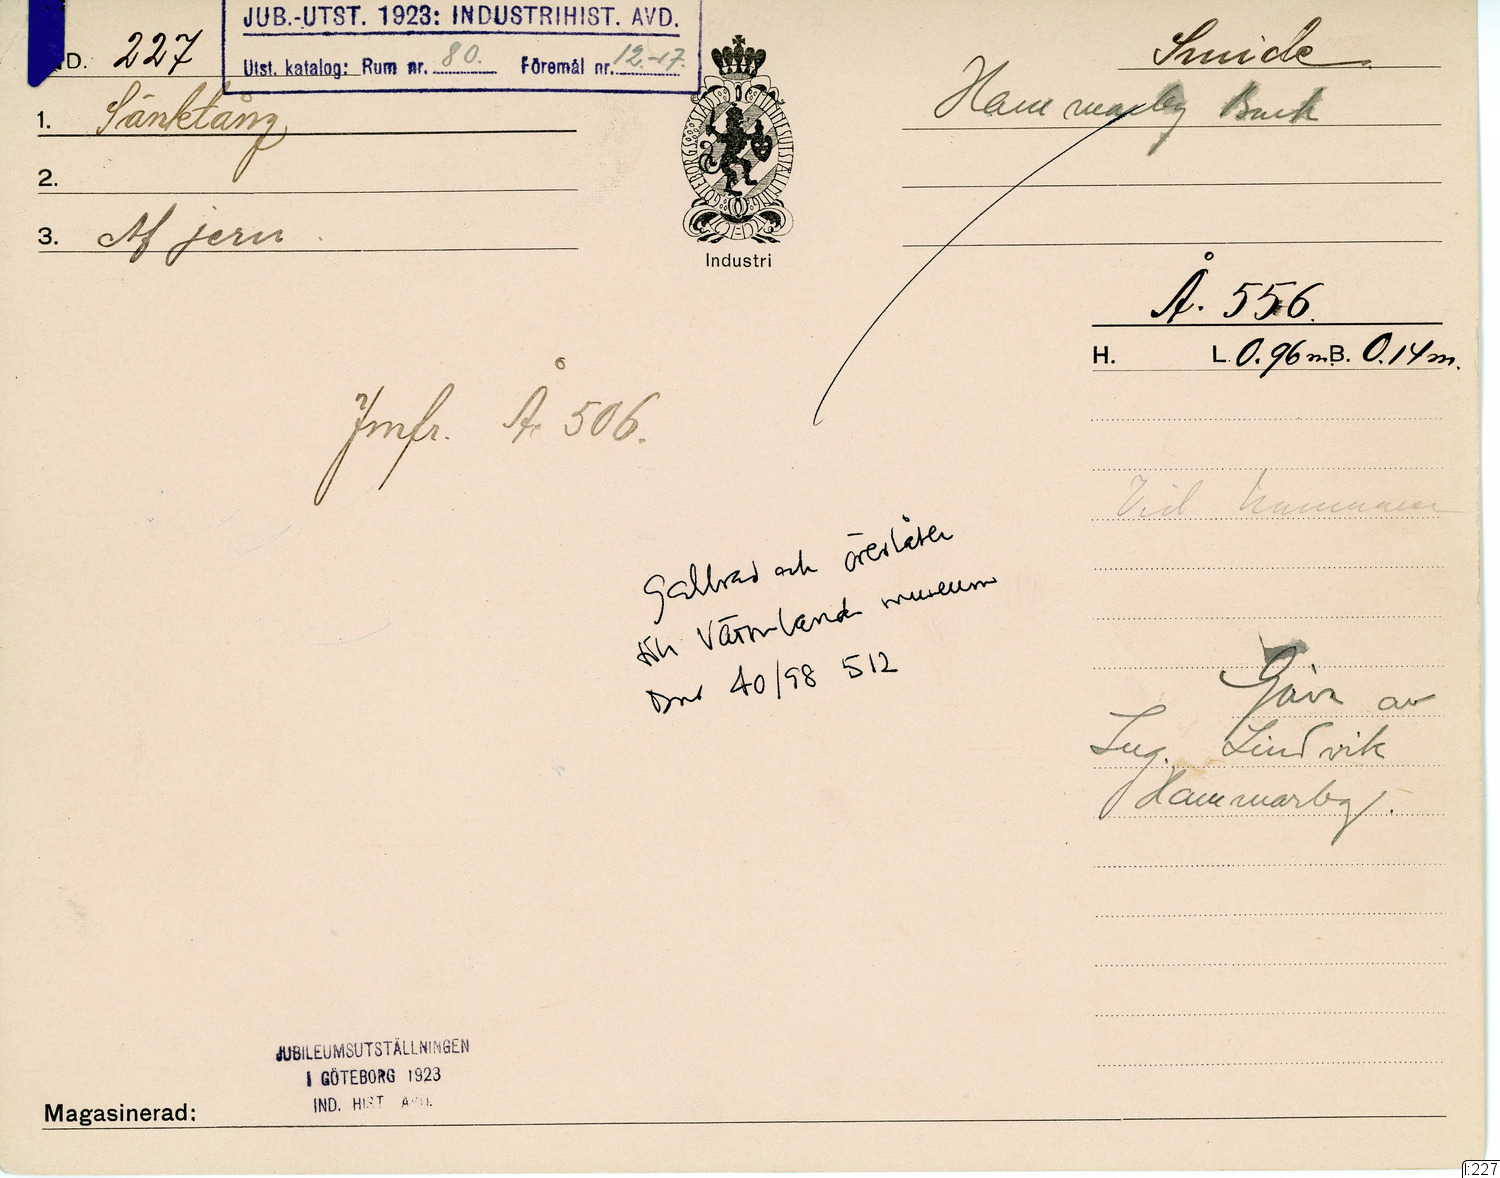 JUB.-UTST. 1923: INDUSTRIHIST. AVD.
Utst. katalog: Rum nr. 80. Föremål nr. 12-17.
D. 227
Smide
1. Sänktång
Hammarby Bruk
2.
3. Af jern
GÖTEBORGS STADS MINNESUTSTÄLLNING
Industri
Å. 556.
H. L. 0.96 m B. 0.14 m.
Jmfr. Å. 506.
Vid hammaren
Gallrad och överlåten
till Värmlands museum
Dnr 40/98 512
Gåva av
Ing. Lindvik
Hammarby.
JUBILEUMSUTSTÄLLNINGEN
I GÖTEBORG 1923
IND. HIST. AVD.
Magasinerad:
I:227